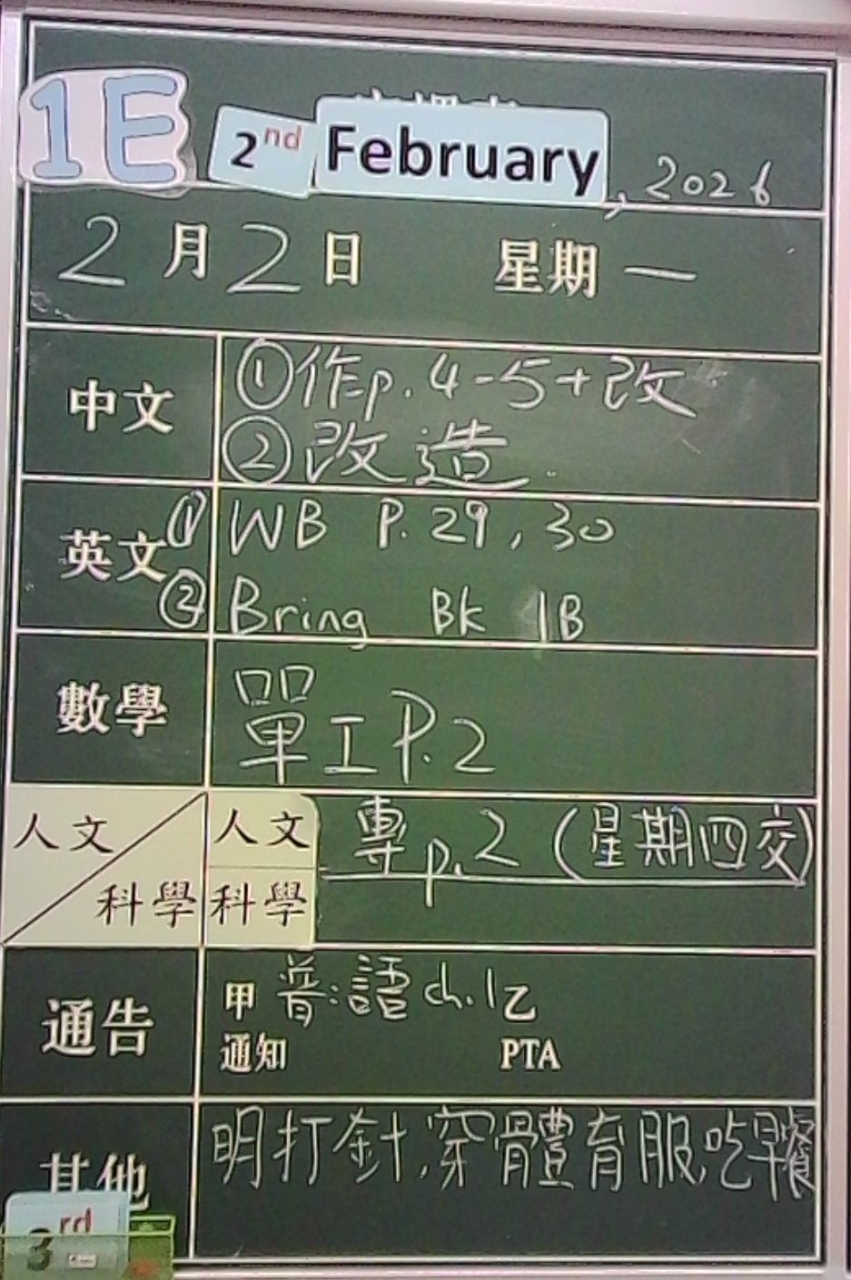 1E
2nd February, 2026
2月2日 星期一
中文 ①作p.4-5+改
②改造.
英文 ①WB P.29,30
②Bring Bk 1B
數學 單工P.2
人文/科學 人文 專p.2(星期四交)
科學
通告 甲 普:語ch.1 乙
通知 PTA
其他 明打針,穿體育服,吃早餐
3rd